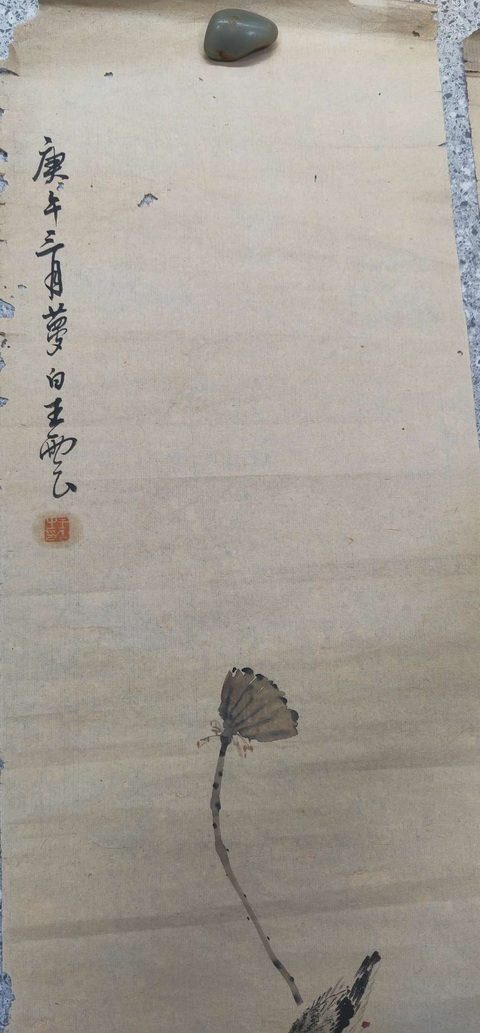 庚午三月夢白王雲